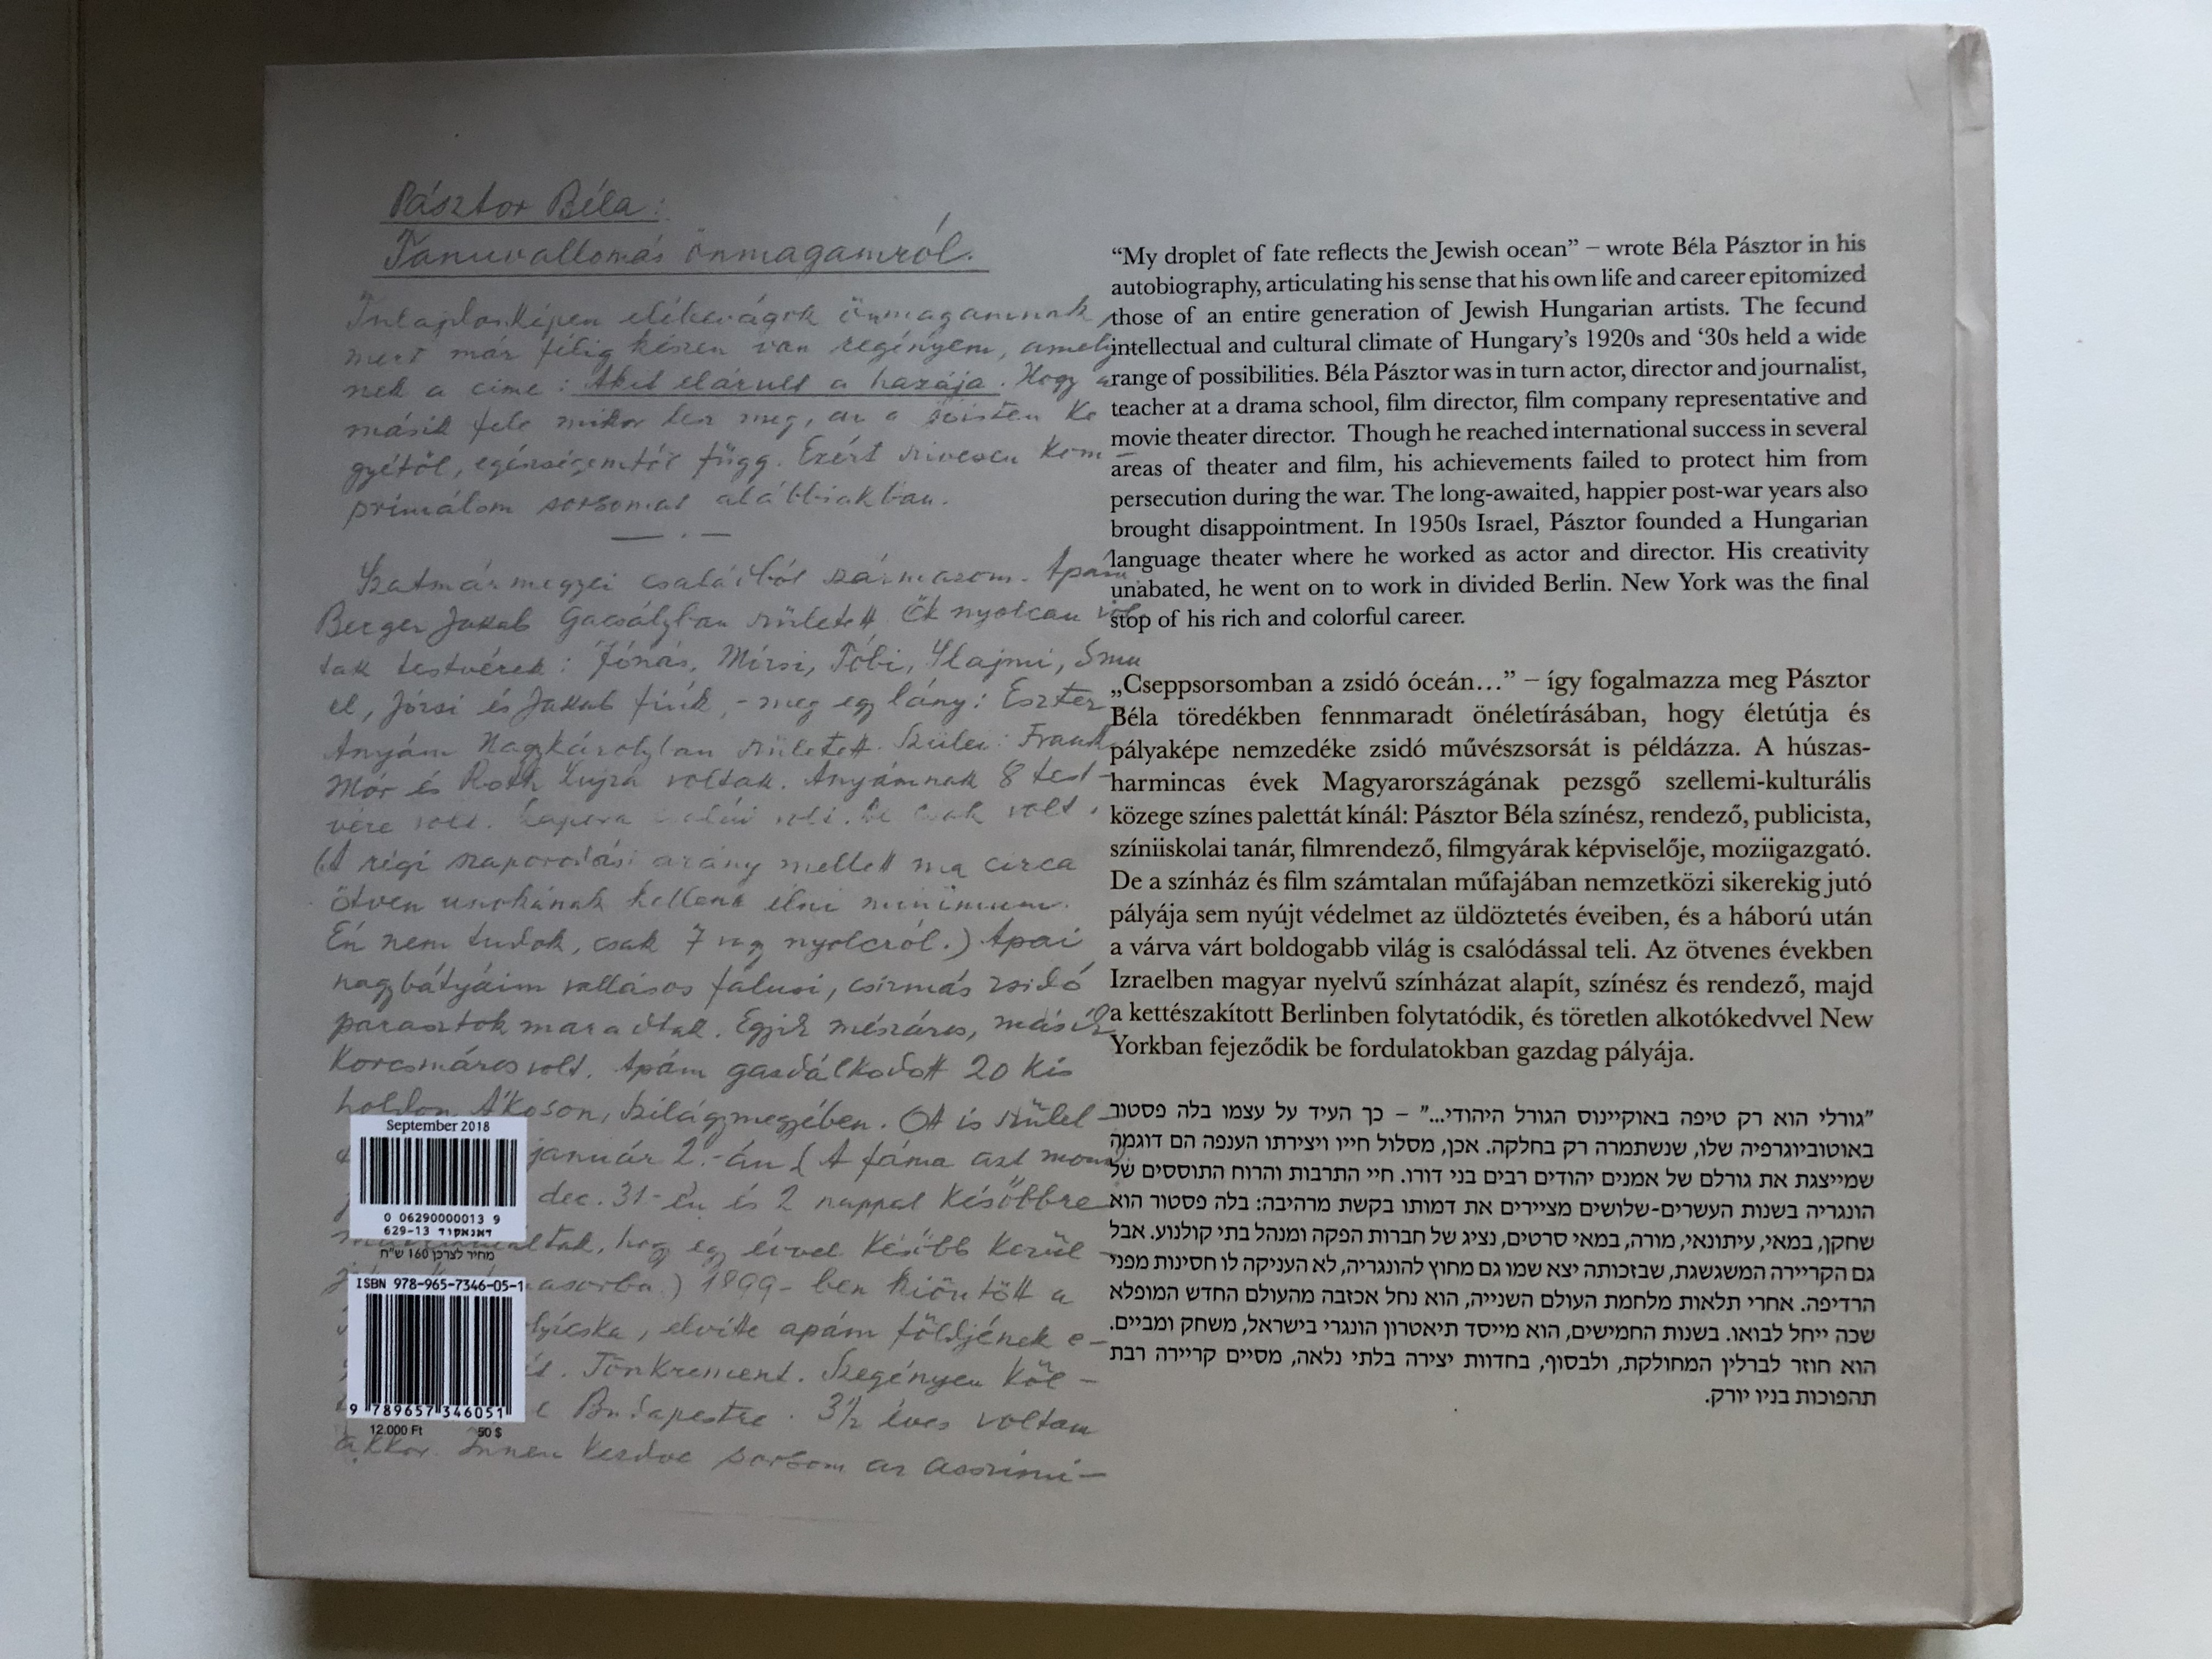 Pásztor Béla:
Tanuvallomás önmagamról.
elébevágok önmagamnak,
mert már félig készen van regényem, amely
nek a cime: Akit elárult a hazája. Hogy a
másik fele mikor lesz meg, az a Jóisten ke
gyétől, egészségemtől függ. Ezért szivesen kom-
primálom sorsomat alábbiakban.
Szatmármegyei családból származom. Apám
Berger Jakab Gacsályban született. Ők nyolcan vol
tak testvérek: Jónás, Mórsi, Tóbi, Slajmi, Smu
el, Józsi és Jakab fiúk, - meg egy lány: Eszter
Anyám Nagykárolyban született. Szülei: Frank
Mór és Roth Lujza voltak. Anyámnak 8 test-
vére volt. csak volt.
(A régi szaporodási arány mellett ma circa
ötven unokának kellene élni minimum.
Én nem tudok, csak 7 vagy nyolcról.) Apai
nagybátyáim vallásos falusi, csizmás zsidó
parasztok maradtak. Egyik mészáros, másik
korcsmáros volt. Apám gazdálkodott 20 kis
holdon Ákoson, Szilágymegyében. Ott is szület-
január 2.-án (A fáma azt mond
dec. 31-én és 2 nappal későbbre
hogy egy évvel később kerül
asorba.) 1899-ben kiöntött a
elvitte apám földjének e-
Tönkrement. Szegényen köl-
Budapestre. 3½ éves voltam
akkor. Innen kezdve sorsom az asszimi-
September 2018
0 06290000013 9
דאנאקוד 629-13
מחיר לצרכן 160 ש"ח
ISBN 978-965-7346-05-1
9 789657 346051
12.000 Ft 50 $
“My droplet of fate reflects the Jewish ocean” – wrote Béla Pásztor in his
autobiography, articulating his sense that his own life and career epitomized
those of an entire generation of Jewish Hungarian artists. The fecund
intellectual and cultural climate of Hungary’s 1920s and ‘30s held a wide
range of possibilities. Béla Pásztor was in turn actor, director and journalist,
teacher at a drama school, film director, film company representative and
movie theater director. Though he reached international success in several
areas of theater and film, his achievements failed to protect him from
persecution during the war. The long-awaited, happier post-war years also
brought disappointment. In 1950s Israel, Pásztor founded a Hungarian
language theater where he worked as actor and director. His creativity
unabated, he went on to work in divided Berlin. New York was the final
stop of his rich and colorful career.
„Cseppsorsomban a zsidó óceán…” – így fogalmazza meg Pásztor
Béla töredékben fennmaradt önéletírásában, hogy életútja és
pályaképe nemzedéke zsidó művészsorsát is példázza. A húszas-
harmincas évek Magyarországának pezsgő szellemi-kulturális
közege színes palettát kínál: Pásztor Béla színész, rendező, publicista,
színiiskolai tanár, filmrendező, filmgyárak képviselője, moziigazgató.
De a színház és film számtalan műfajában nemzetközi sikerekig jutó
pályája sem nyújt védelmet az üldöztetés éveiben, és a háború után
a várva várt boldogabb világ is csalódással teli. Az ötvenes években
Izraelben magyar nyelvű színházat alapít, színész és rendező, majd
a kettészakított Berlinben folytatódik, és töretlen alkotókedvvel New
Yorkban fejeződik be fordulatokban gazdag pályája.
"גורלי הוא רק טיפה באוקיינוס הגורל היהודי..." – כך העיד על עצמו בלה פסטור
באוטוביוגרפיה שלו, שנשתמרה רק בחלקה. אכן, מסלול חייו ויצירתו הענפה הם דוגמה
שמייצגת את גורלם של אמנים יהודים רבים בני דורו. חיי התרבות והרוח התוססים של
הונגריה בשנות העשרים-שלושים מציירים את דמותו בקשת מרהיבה: בלה פסטור הוא
שחקן, במאי, עיתונאי, מורה, במאי סרטים, נציג של חברות הפקה ומנהל בתי קולנוע. אבל
גם הקריירה המשגשגת, שבזכותה יצא שמו גם מחוץ להונגריה, לא העניקה לו חסינות מפני
הרדיפה. אחרי תלאות מלחמת העולם השנייה, הוא נחל אכזבה מהעולם החדש המופלא
שכה ייחל לבואו. בשנות החמישים, הוא מייסד תיאטרון הונגרי בישראל, משחק ומביים.
הוא חוזר לברלין המחולקת, ולבסוף, בחדוות יצירה בלתי נלאה, מסיים קריירה רבת
תהפוכות בניו יורק.